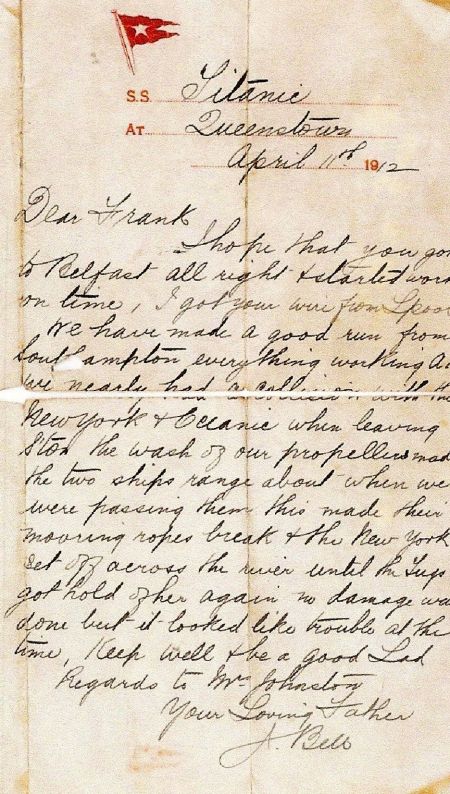 S.S. Titanic
At Queenstown
April 11th 1912
Dear Frank
I hope that you got
to Belfast all right & started work
on time, I got your wire from Lpool
We have made a good run from
Southampton everything working A1
we nearly had a collision with the
New York & Oceanic when leaving
Ston the wash of our propellers made
the two ships range about when we
were passing them this made their
mooring ropes break & the New York
set off across the river until the Tugs
got hold of her again no damage was
done but it looked like trouble at the
time, Keep well & be a good Lad
Regards to Mrs Johnston
Your Loving Father
J. Bell